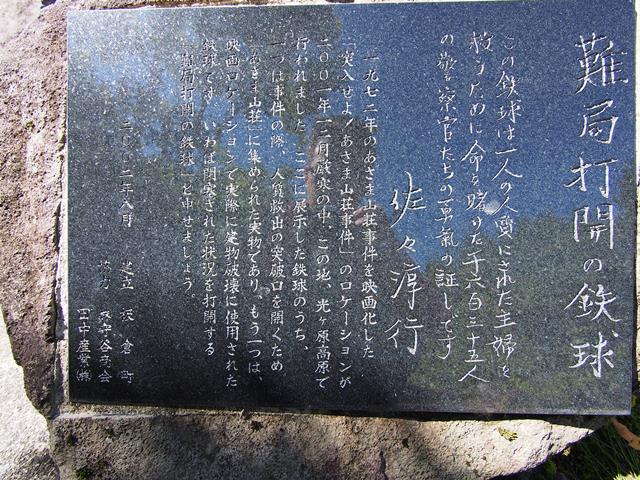 難局打開の鉄球
この鉄球は一人の人質にされた主婦を
救うために命を賭けた千六百三十五人
の警察官たちの勇氣の証しです
佐々淳行
一九七二年のあさま山荘事件を映画化した
「突入せよ!あさま山荘事件」のロケーションが
二〇〇一年一二月厳寒の中、この地、光ヶ原高原で
行われました。ここに展示した鉄球のうち、
一つは事件の際、人質救出の突破口を開くため
「あさま山荘」に集められた実物であり、もう一つは、
映画ロケーションで実際に建物破壊に使用された
鉄球です。いわば閉塞された状況を打開する
「難局打開の鉄球」と申せましょう。
二〇〇二年八月
建立 板倉町
協力
田中産業㈱